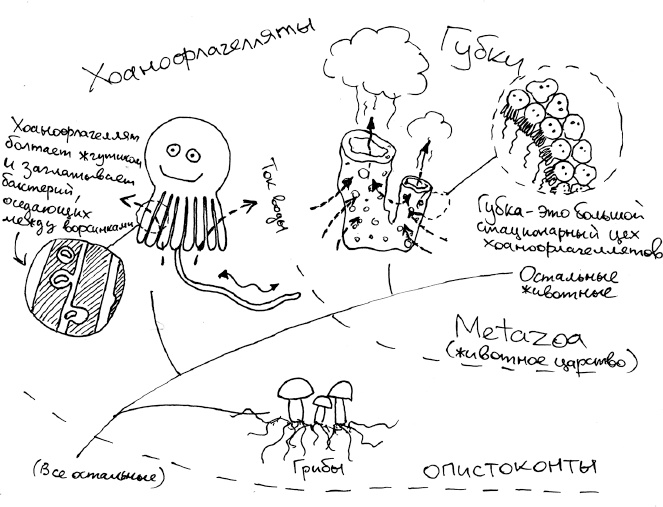 Хоанофлагелляты
Губки
Хоанофлагеллят
болтает жгутиком
и заглатывает
бактерий,
оседающих
между ворсинками
Ток воды
Губка-это большой
стационарный цех
хоанофлагеллятов
Остальные
животные
Metazoa
(животное царство)
Грибы
(Все остальные)
опистоконты